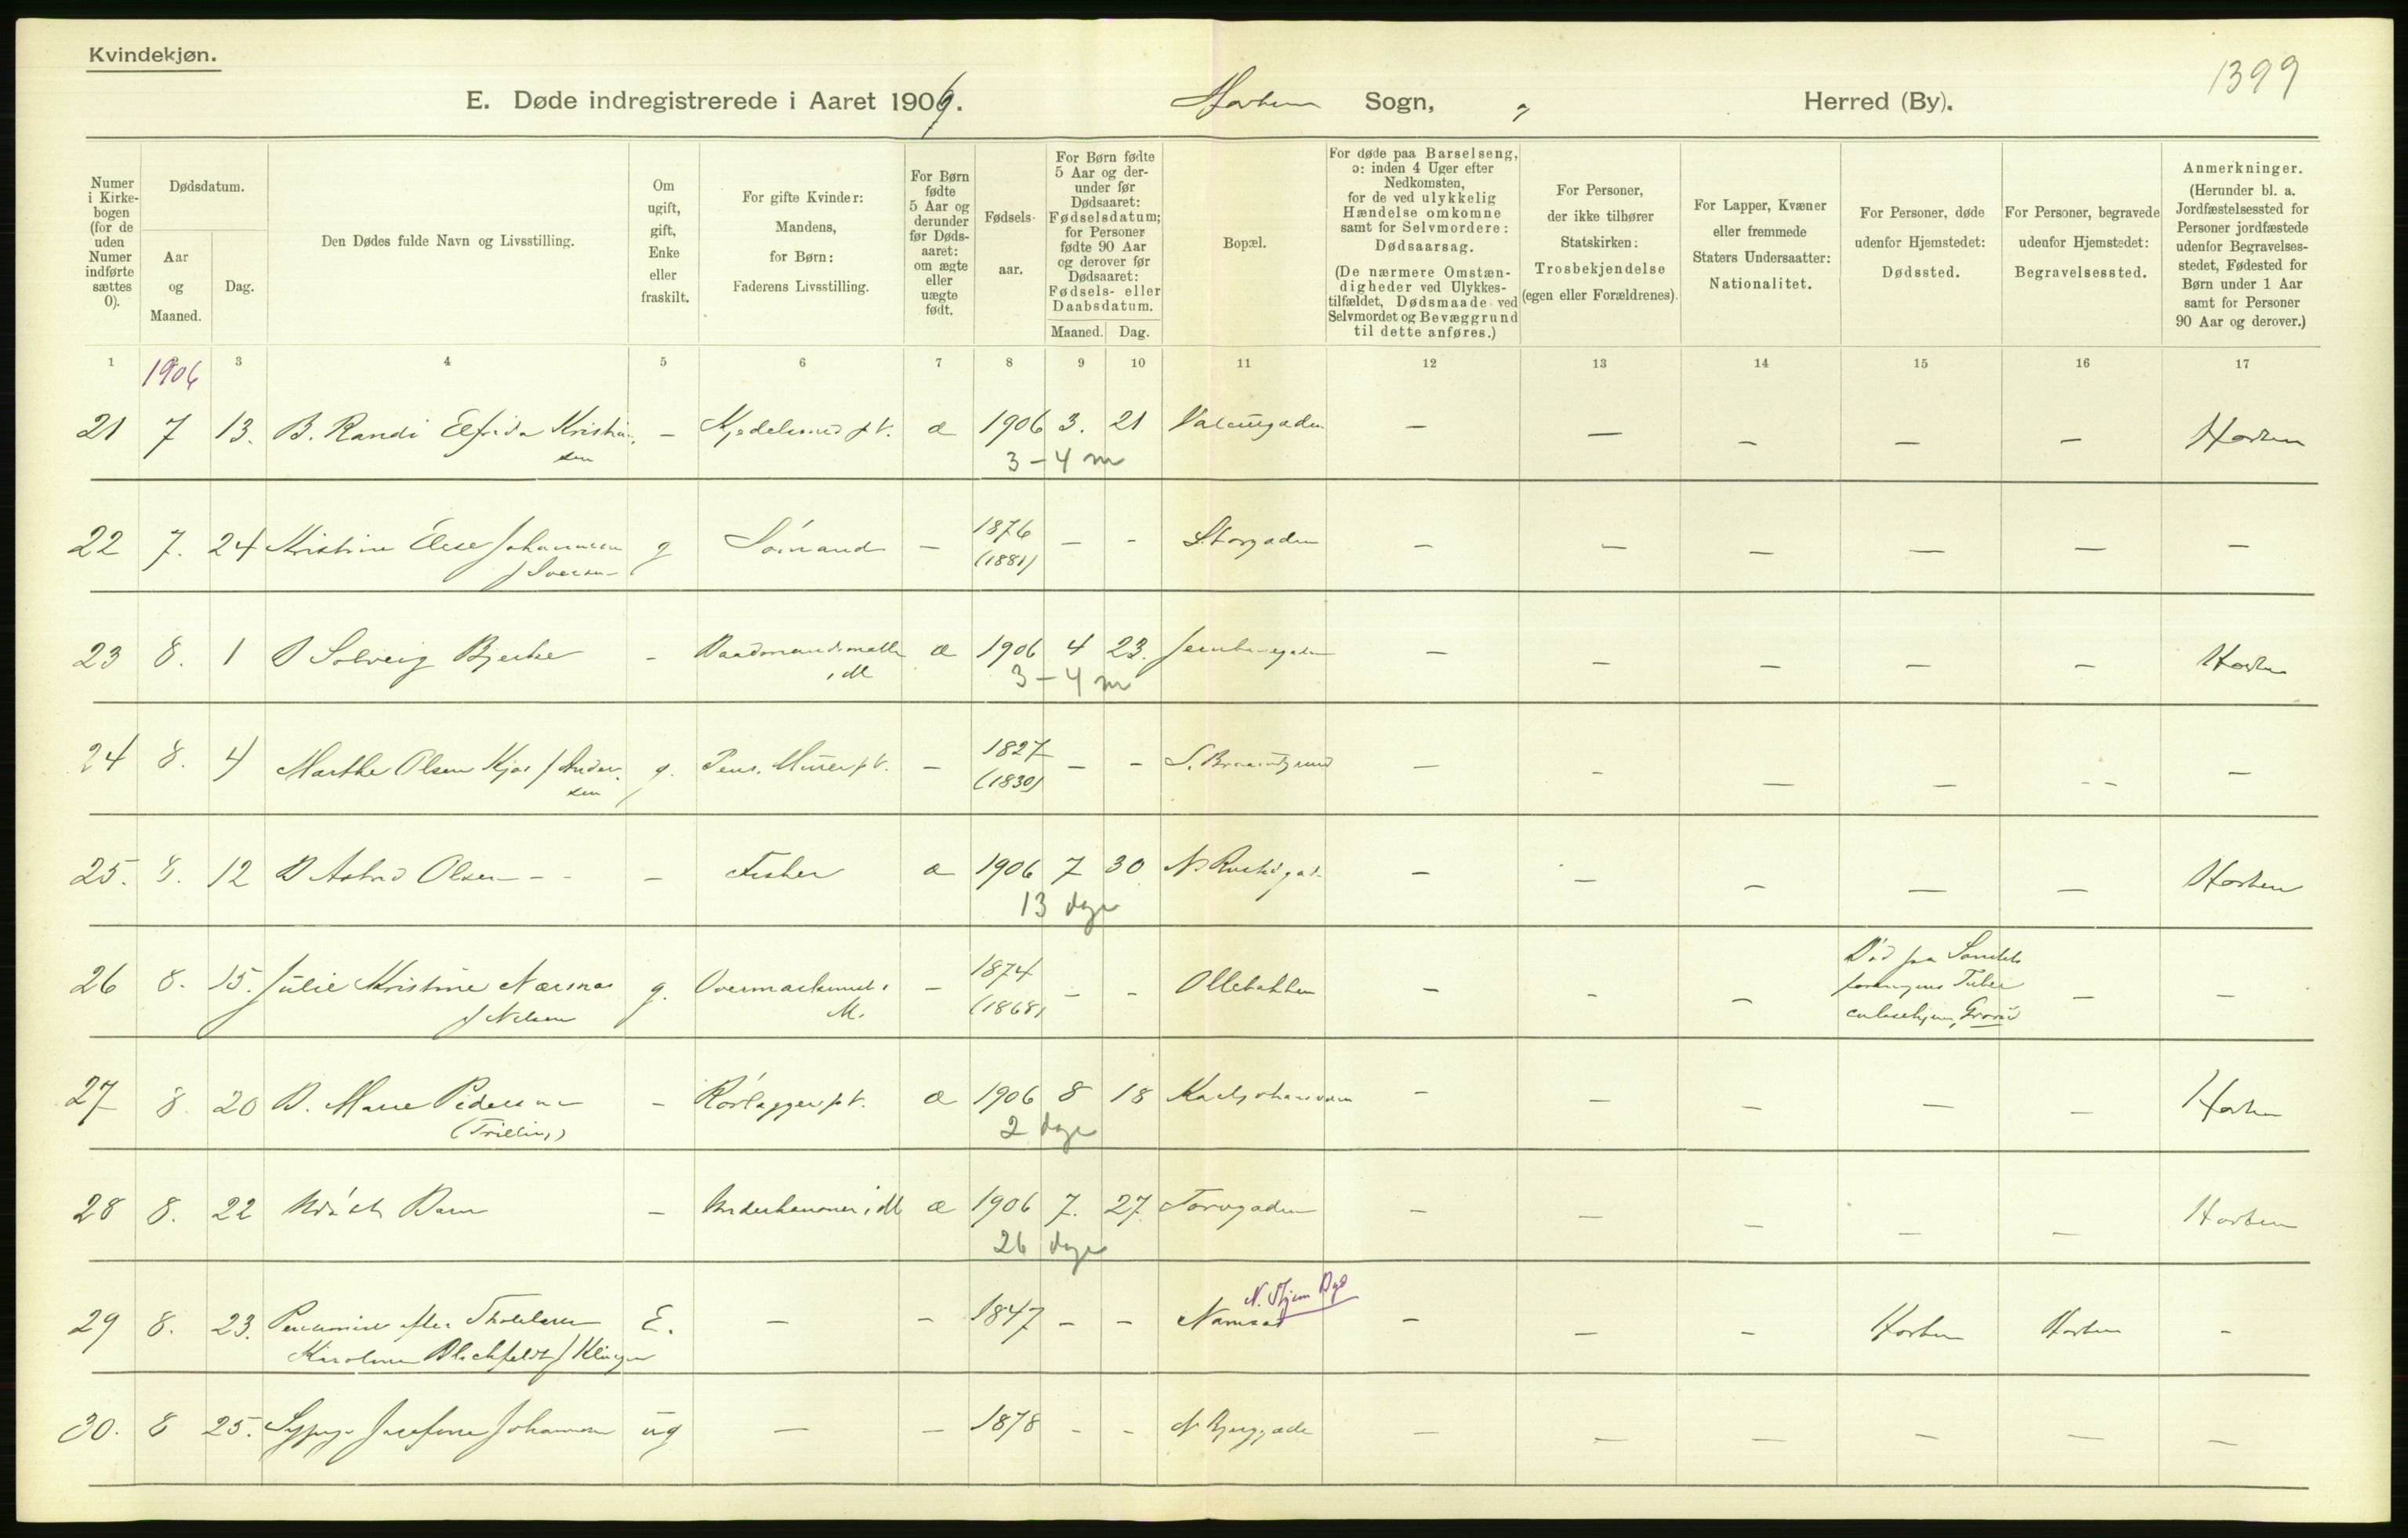 Kvindekjøn.
1399
E. Døde indregistrerede i Aaret 1906. Horten Sogn, " Herred (By).
Numer i Kirke-bogen (for de uden Numer indførte sættes 0).
Dødsdatum.
Aar og Maaned.
Dag.
Den Dødes fulde Navn og Livsstilling.
Om ugift, gift, Enke eller fraskilt.
For gifte Kvinder: Mandens, for Børn: Faderens Livsstilling.
For Børn fødte 5 Aar og derunder før Døds-aaret: om ægte eller uægte født.
Fødsels-aar.
For Børn fødte 5 Aar og der-under før Dødsaaret: Fødselsdatum; for Personer fødte 90 Aar og derover før Dødsaaret: Fødsels- eller Daabsdatum.
Maaned. Dag.
Bopæl.
For døde paa Barselseng, ɔ: inden 4 Uger efter Nedkomsten, for de ved ulykkelig Hændelse omkomne samt for Selvmordere: Dødsaarsag.
(De nærmere Omstæn-digheder ved Ulykkes-tilfældet, Dødsmaade ved Selvmordet og Bevæggrund til dette anføres.)
For Personer, der ikke tilhører Statskirken: Trosbekjendelse (egen eller Forældrenes).
For Lapper, Kvæner eller fremmede Staters Undersaatter: Nationalitet.
For Personer, døde udenfor Hjemstedet: Dødssted.
For Personer, begravede udenfor Hjemstedet: Begravelsessted.
Anmerkninger.
(Herunder bl. a. Jordfæstelsessted for Personer jordfæstede udenfor Begravelses-stedet, Fødested for Børn under 1 Aar samt for Personer 90 Aar og derover.)
1 3 4 5 6 7 8 9 10 11 12 13 14 15 16 17
1906
21 7 13. B. Randi Elfrida Kristian- — Kjedelsmed p V. æ 1906 3. 21 — — — — — Horten
sen 3-4 m
22 7. 24 Kristine Elise Johannesen g Sømand — 1876 — - Storgaden — — — — — —
f Iversen (1881)
23 8. 1 Solveig Bjerke - Baadsmandsmath æ 1906 4 23. Jernbanegaden — — — — — Horten
i M 3-4 m
24 8. 4 Marthe Olsen Kjær f Ander- g. Pens. Murer p V. — 1827 — - — - — — - - —
sen (1830)
25. 8. 12 Astrid Olsen - - — Fisker æ 1906 7 30 — — — — — Horten
13 dage
26 8. 15. Julie Kristine Næsnes g. — 1874 — - Ollebakken — - — Død paa Sanitets — —
f Nilsen M. (1868) foreningens Tuber
culosehjem, Grorud
27 8. 20 Marie Pedersen - Rørlægger p V. æ 1906 8 18 Karljohansvern - — — — — Horten
(Trilling) 2 dage
28 8. 22 Udøbt Barn — Underkanoner i M æ 1906 7. 27. Torvgaden — — — — — Horten
26 dage
N. Thjem Dgd
29 8. 23. Pensionist efter E. — — 1847 - - Namsos — — — Horten Horten -
Karoline Blichfeldt f Klinger
30. 8 25. Sypige Josefine Johannesen ug — — 1878 - - N Bjerggade — — — — — —